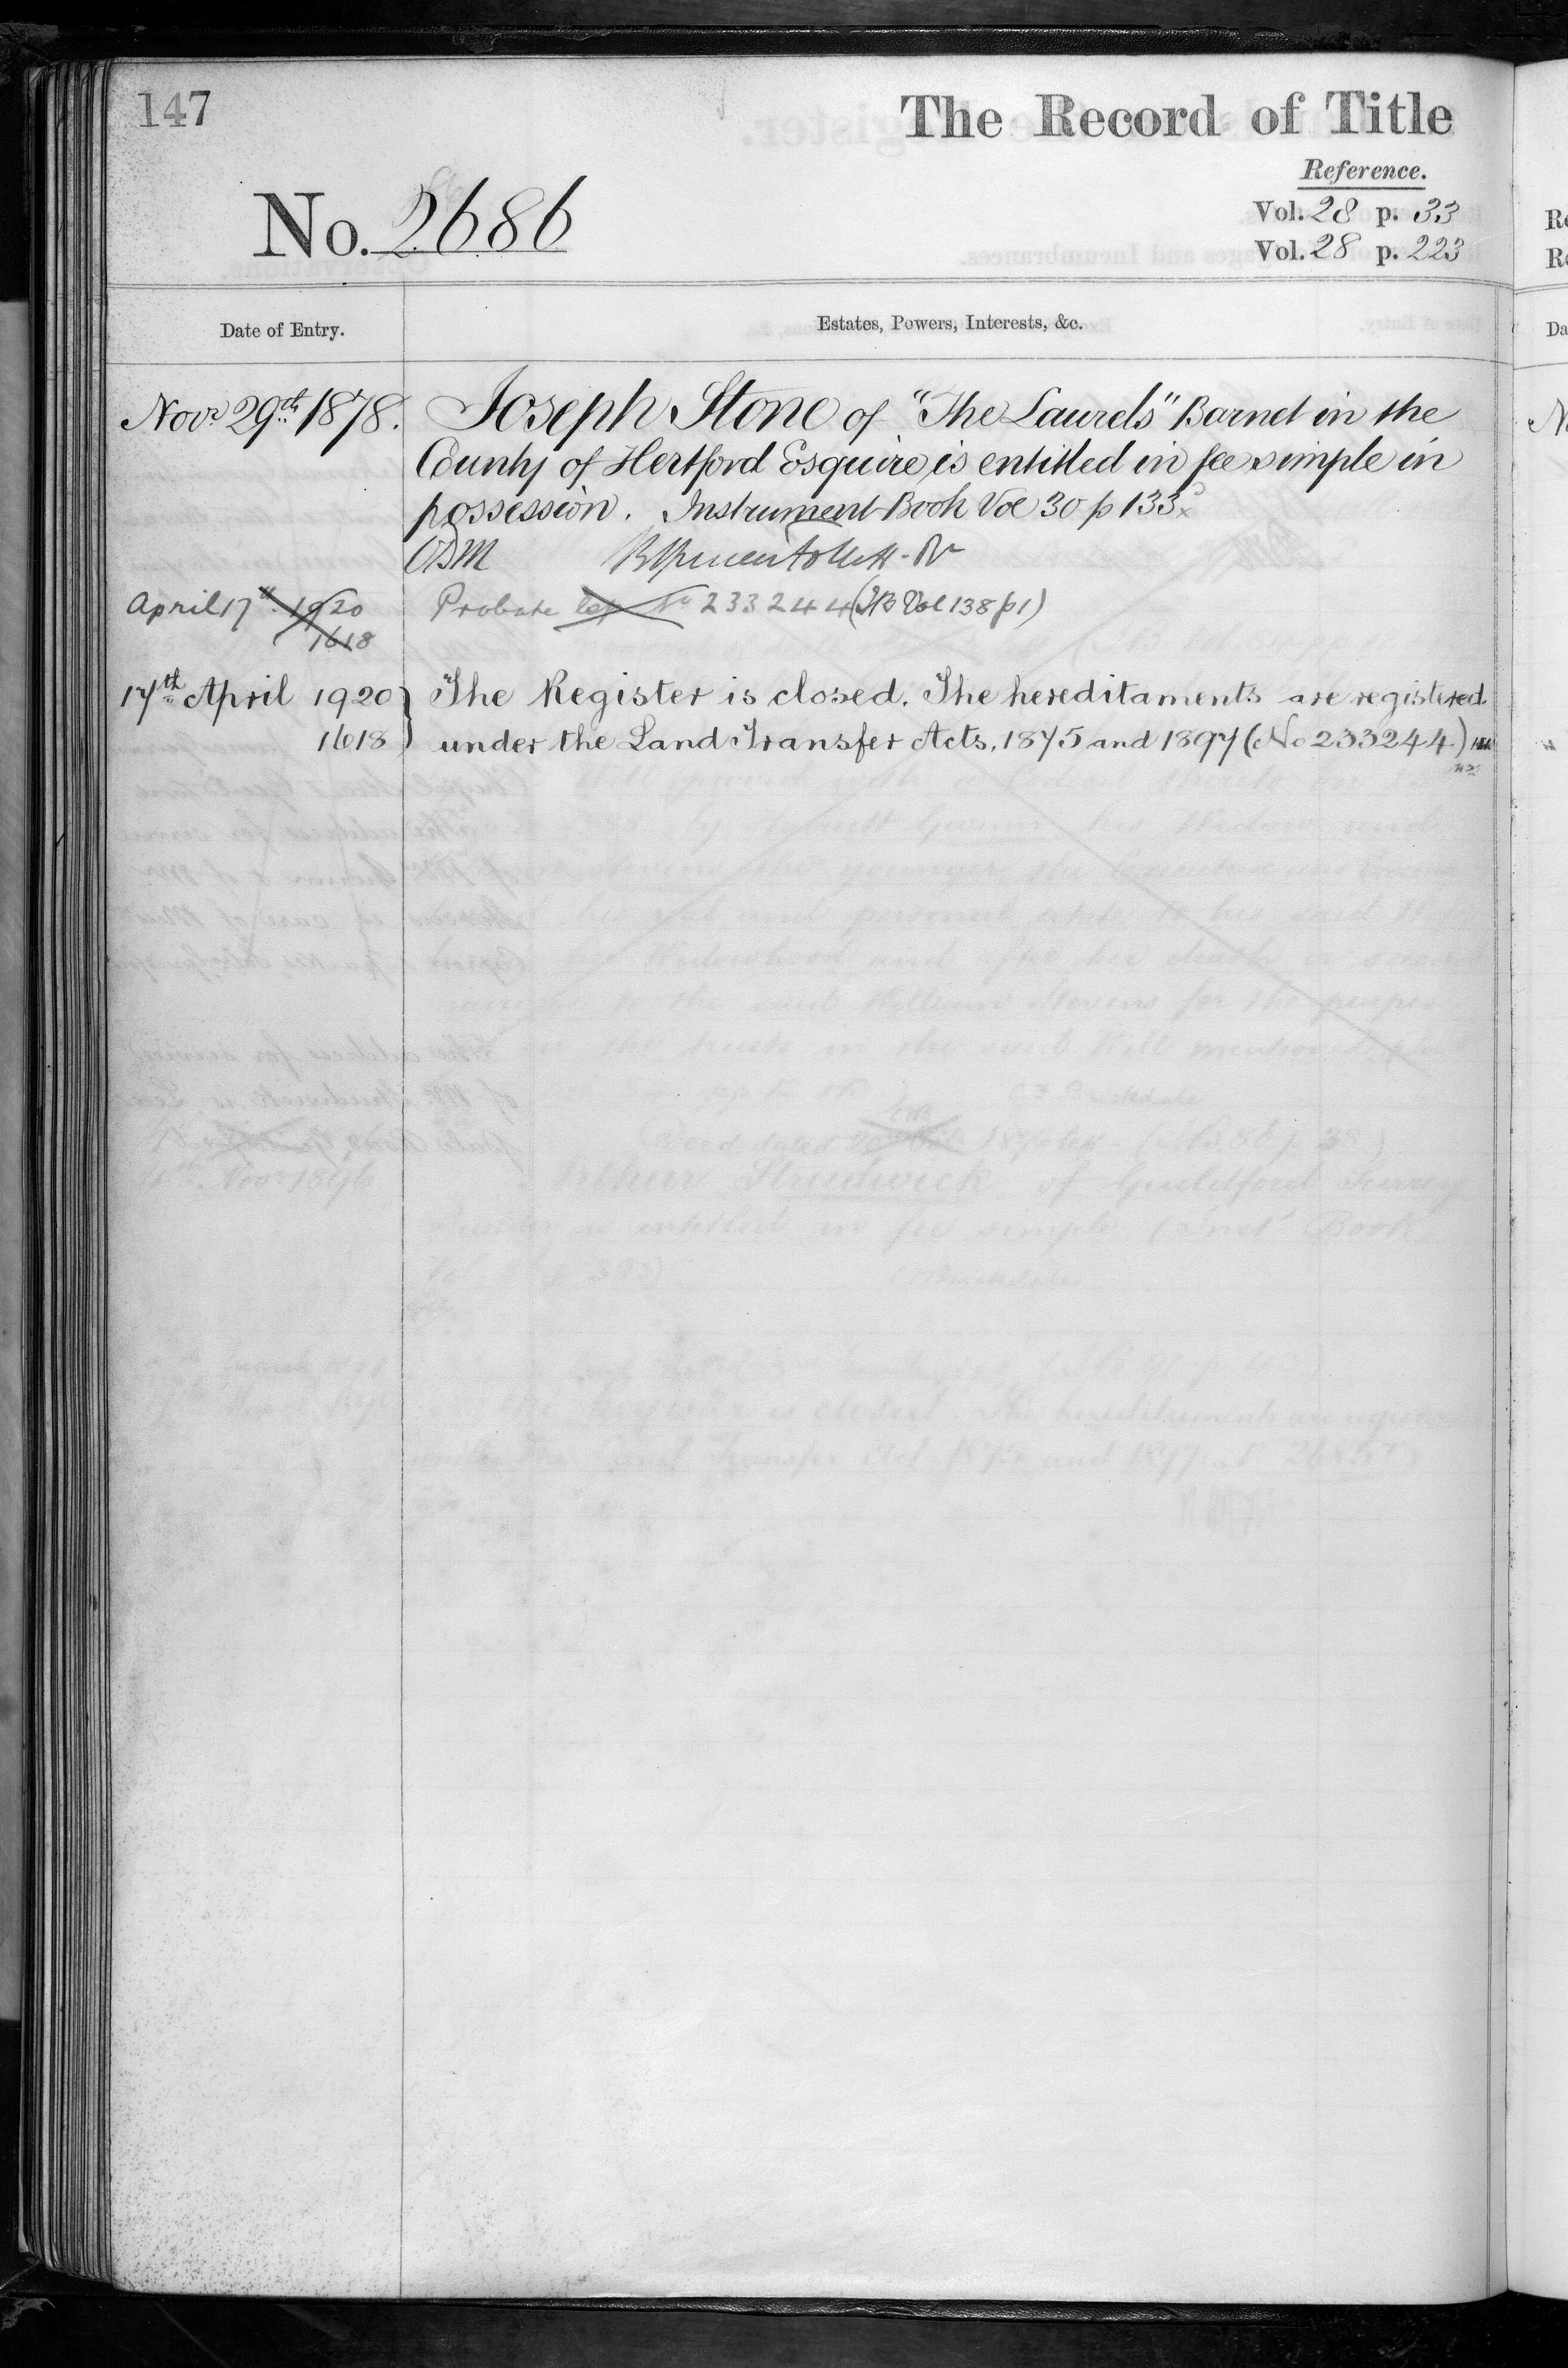 147
The Record of Title
Reference.
No. 2686
Vol. 28 p. 33
Vol. 28 p. 223
Date of Entry.
Estates, Powers, Interests, &c.
Novr 29th 1878. Joseph Stone of "The Laurels" Barnet in the
County of Hertford Esquire is entitled in fee simple in
possession. Instrument Book Vol 30 p 133
April 17th 1920 Probate No 233244 (IB Vol 138 p 1)
1618
17th April 1920 The Register is closed. The hereditaments are registered
1618 under the Land Transfer Acts, 1875 and 1897 (No 233244)